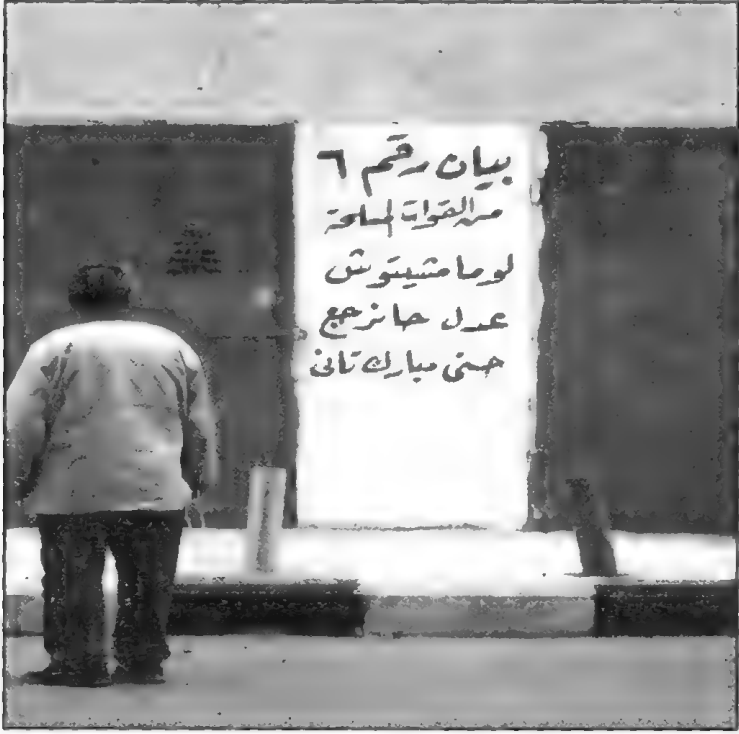 بيان رقم ٦
من القوات المسلحة
لو ما مشيتوش
عدل حانرجع
حسنى مبارك تانى